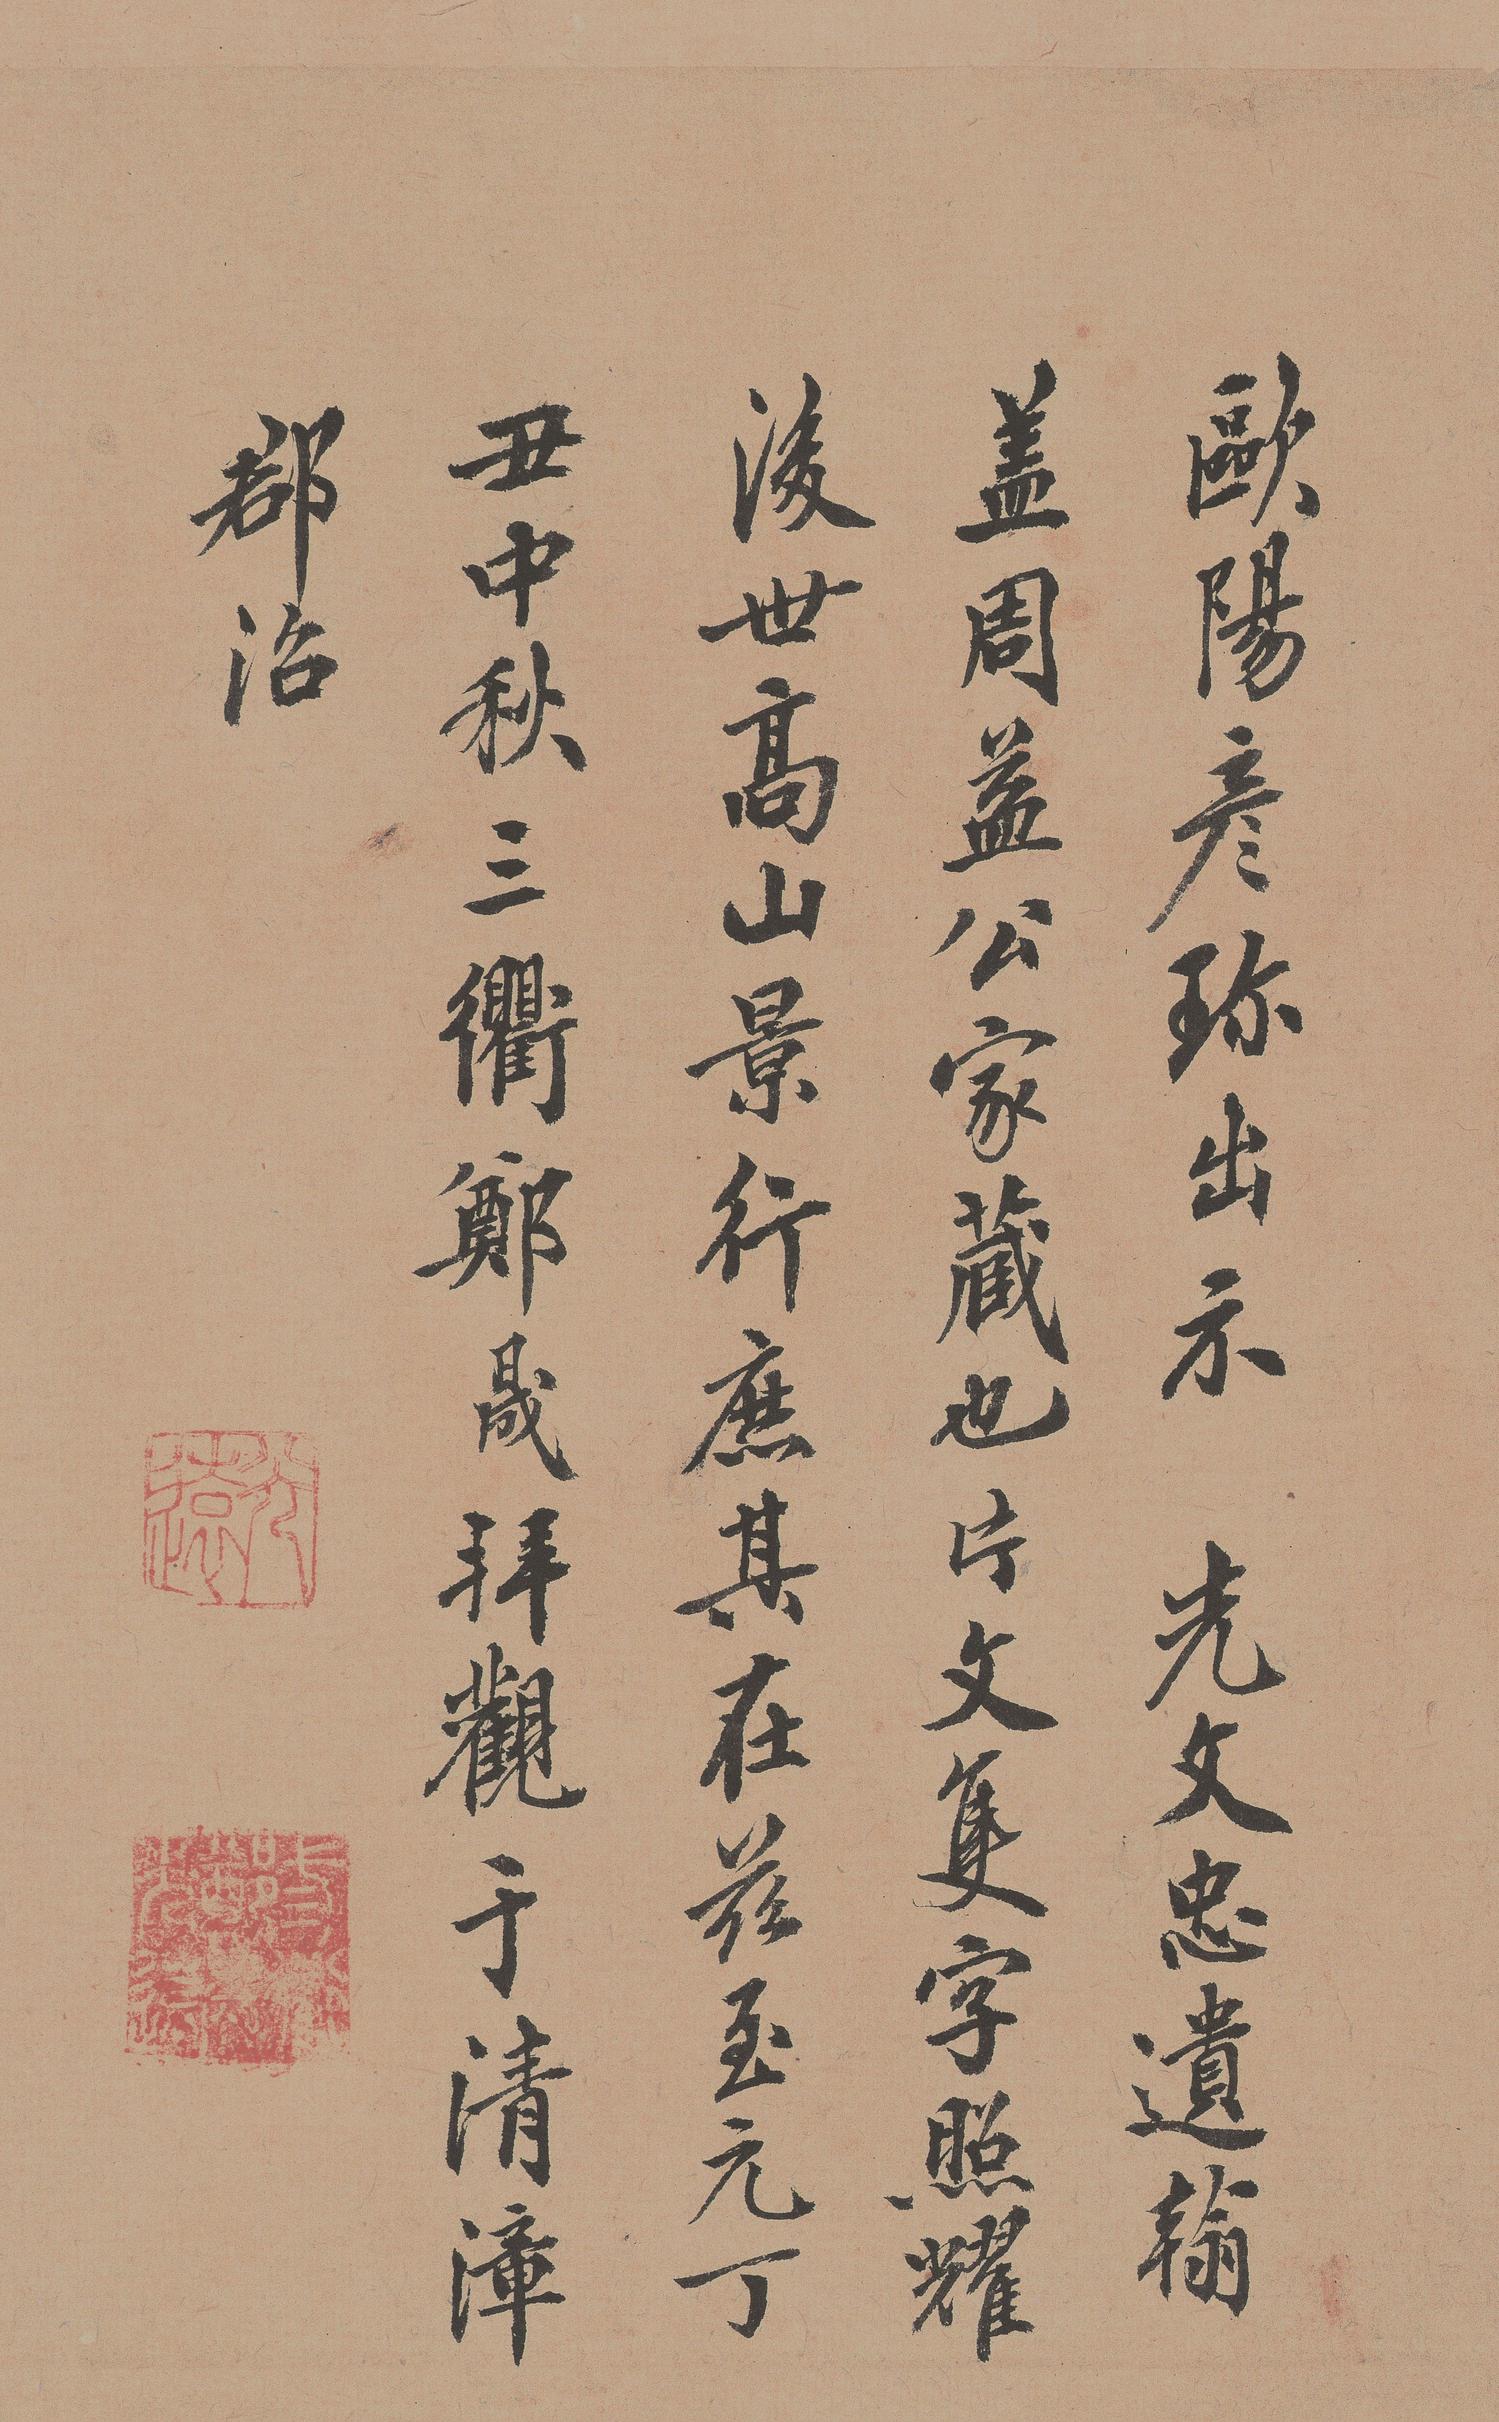 歐陽彦珎出示　先文忠遺翰
盖周益公家蔵也片文隻字照耀
後世髙山景行庶其在兹至元丁
丑中秋三衢鄭晟拜觀于清漳
郡治